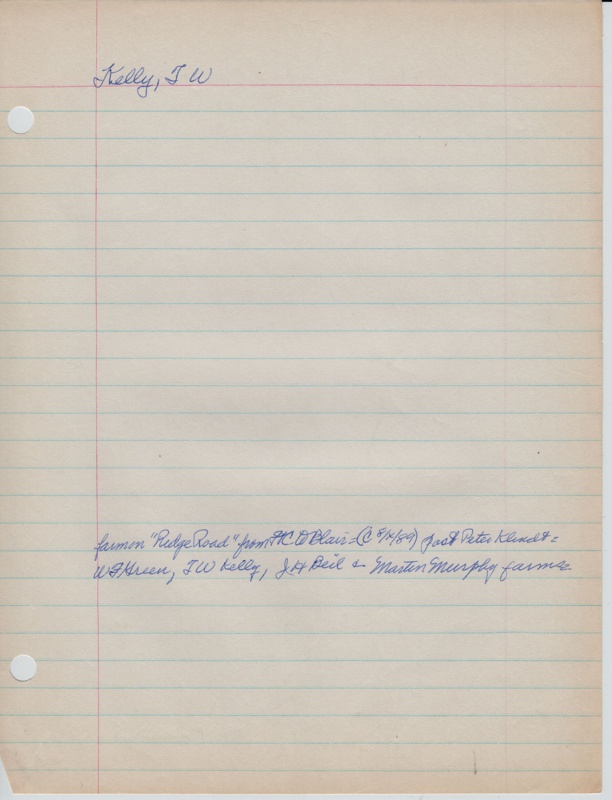 Kelly, T W
farm on "Ridge Road" from Ft C to Blair = (C 5/4/89) past Peter Klindt =
W F Green, T W Kelly, J H Beil & Martin Murphy farms